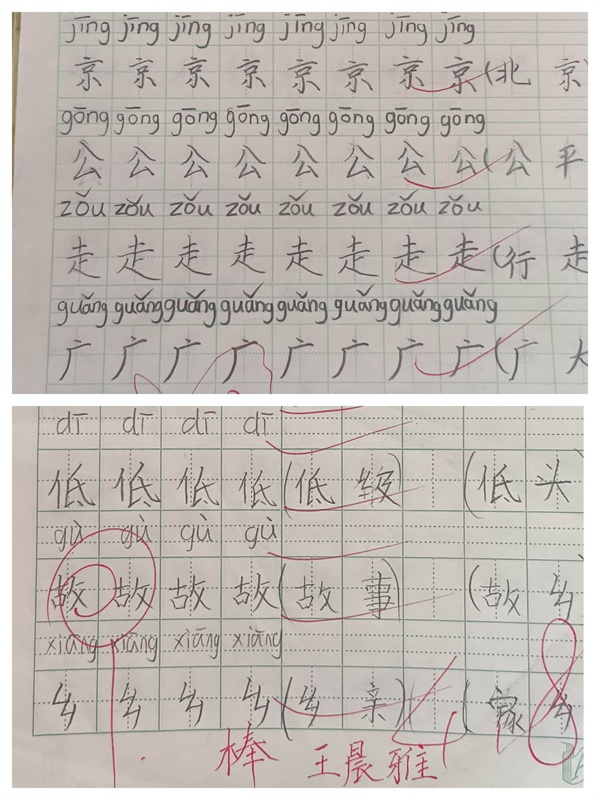 jīng jīng jīng jīng jīng jīng jīng jīng
京 京 京 京 京 京 京 京 (北 京
gōng gōng gōng gōng gōng gōng gōng gōng
公 公 公 公 公 公 公 公 (公 平
zǒu zǒu zǒu zǒu zǒu zǒu zǒu zǒu
走 走 走 走 走 走 走 走 (行 走
guǎng guǎng guǎng guǎng guǎng guǎng guǎng guǎng
广 广 广 广 广 广 广 广 (广 大
dī dī dī dī
低 低 低 低 (低 级) (低 头
gù gù gù gù
故 故 故 故 (故 事) (故 乡
xiāng xiāng xiāng xiāng
乡 乡 乡 乡 (乡 亲) (家 乡
棒 王晨雅